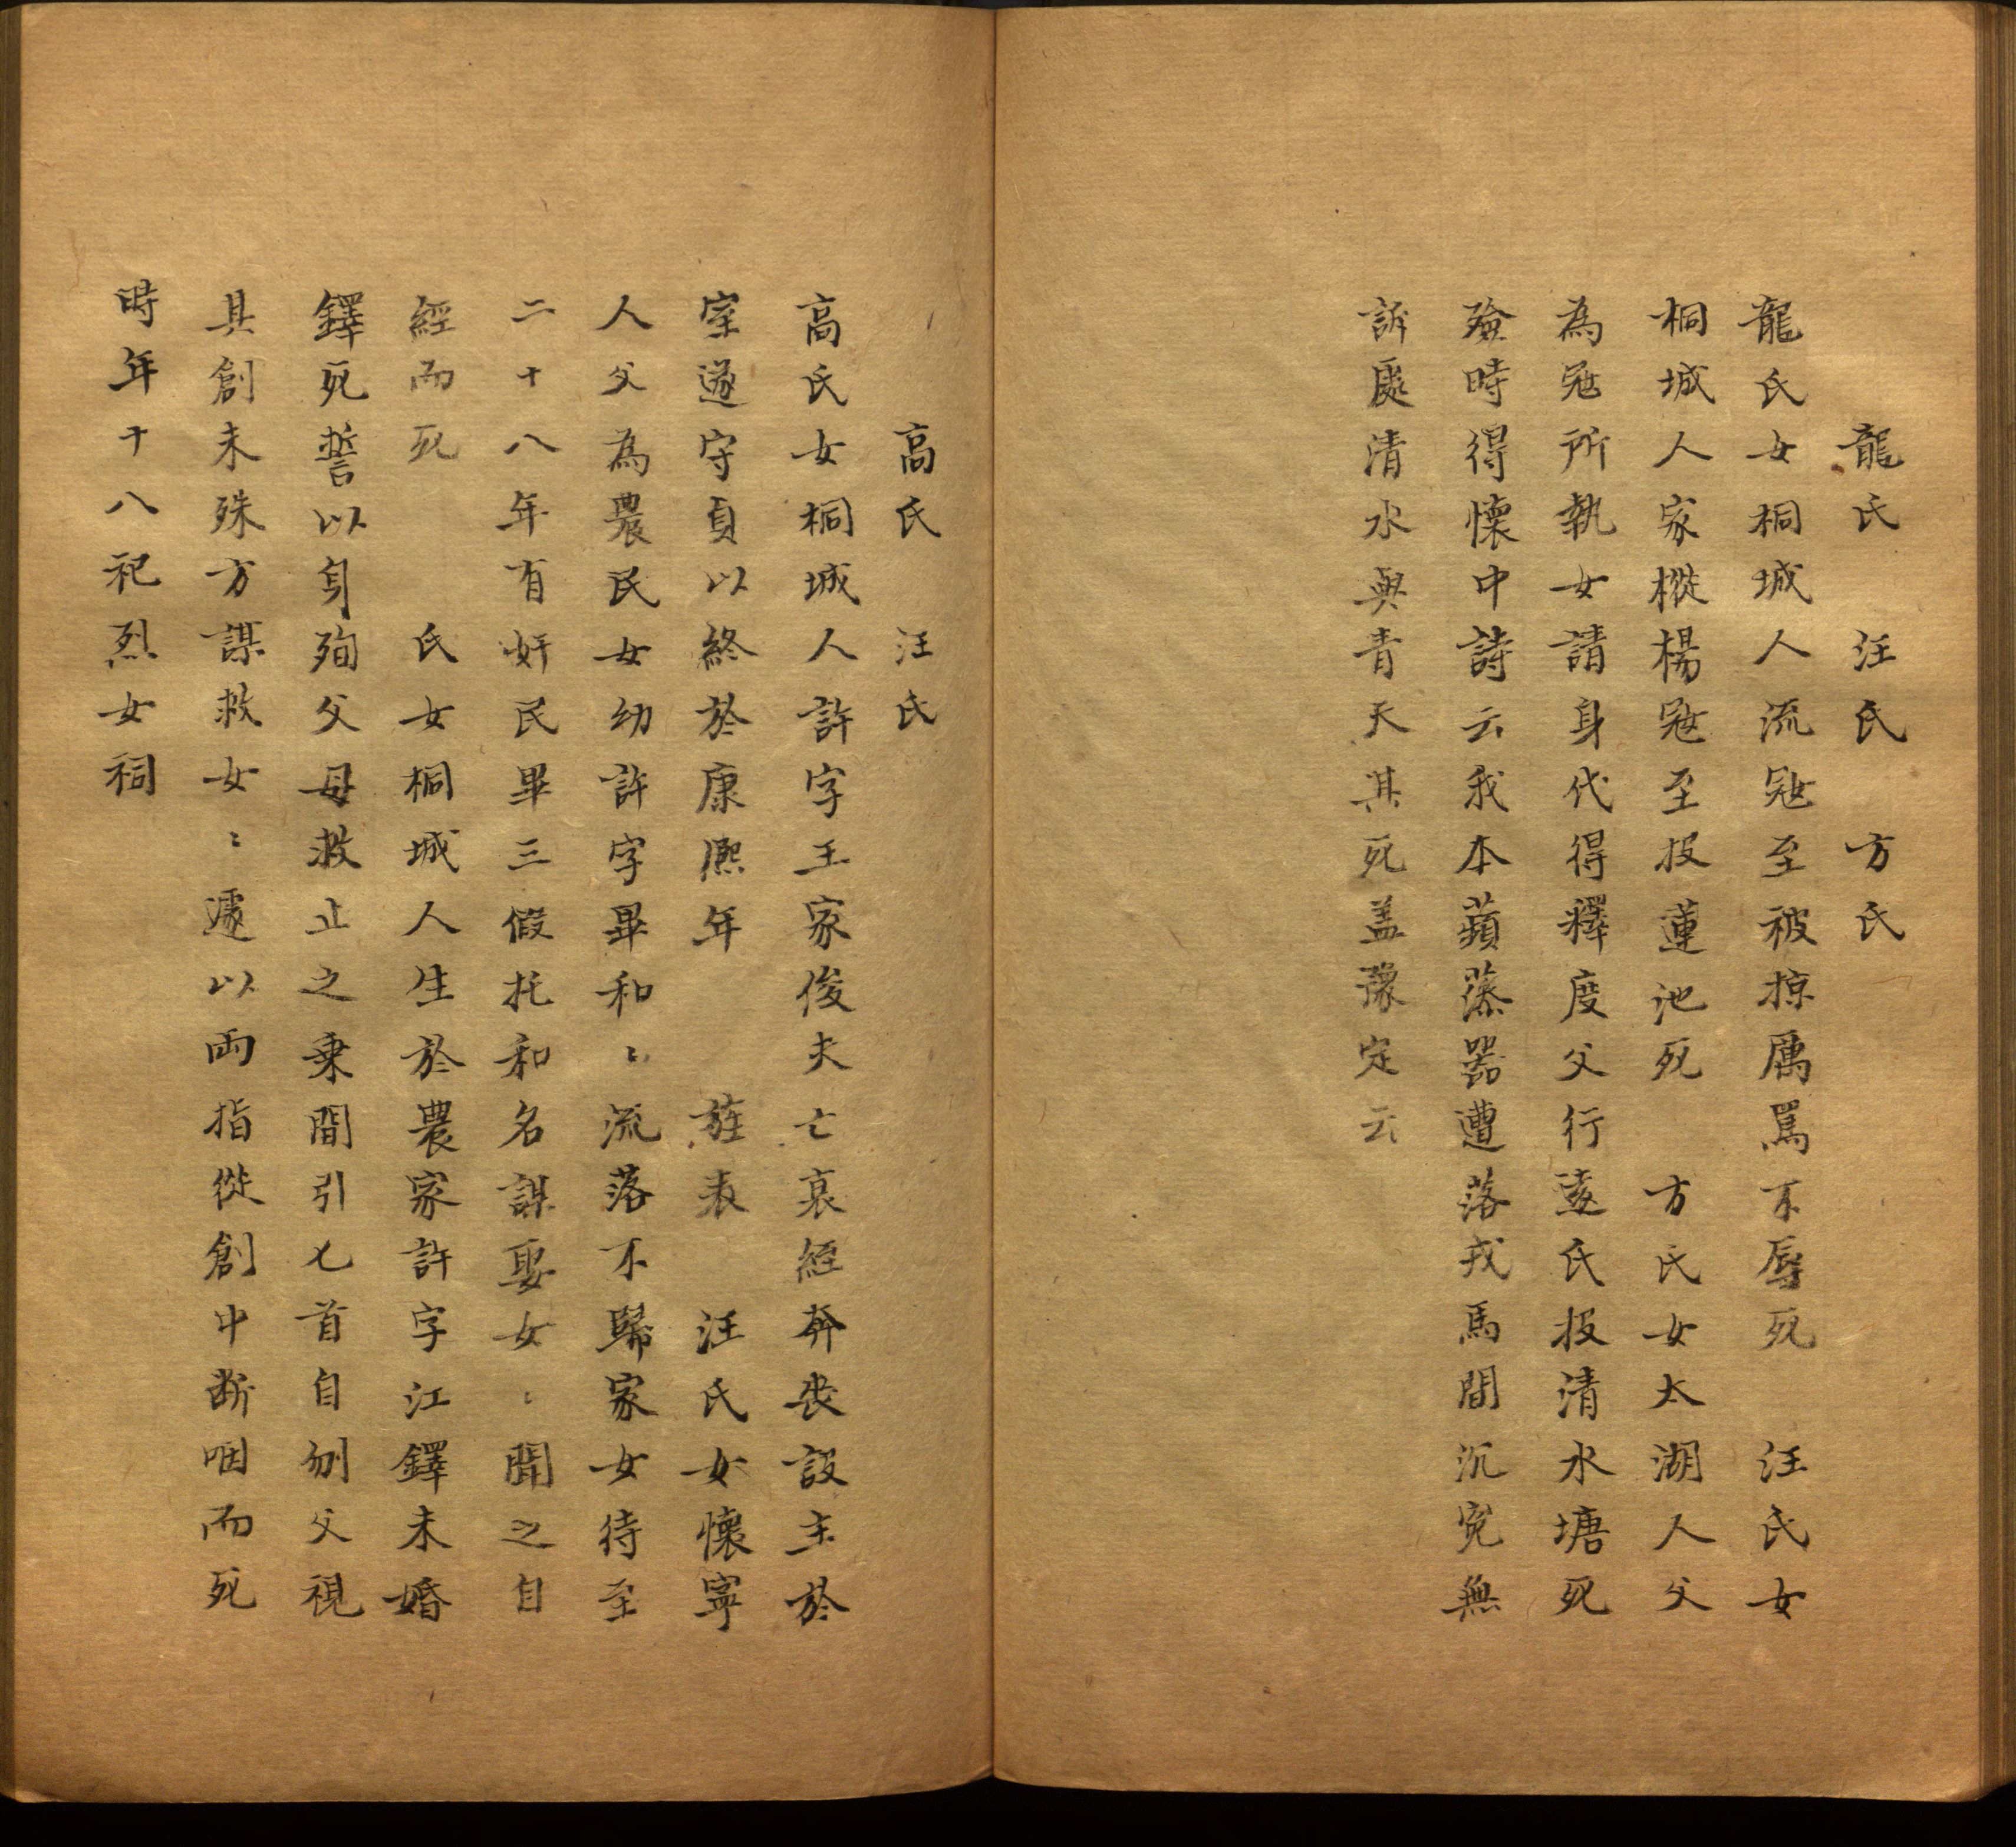 龍氏 汪氏 方氏
龍氏女桐城人流寇至被掠厲罵不辱死 汪氏女
桐城人家樅楊寇至投蓮池死 方氏女太湖人父
為寇所執女請身代得釋度父行遠氏投清水塘死
殮時得懷中詩云我本蘋藻器遭落戎馬間沉寃無
訴處清水與青天其死盖豫定云
高氏 汪氏
高氏女桐城人許字王家俊夫亡哀絰奔喪設主於
室遂守貞以終於康熈年 旌表 汪氏女懷寧
人父為農民女幼許字畢和〻流落不歸家女待至
二十八年有奸民畢三假托和名謀娶女〻聞之自
經而死 氏女桐城人生於農家許字江鐸未婚
鐸死誓以身殉父母救止之乗間引匕首自刎父視
其創未殊方謀救女〻遽以両指從創中断咽而死
時年十八祀烈女祠